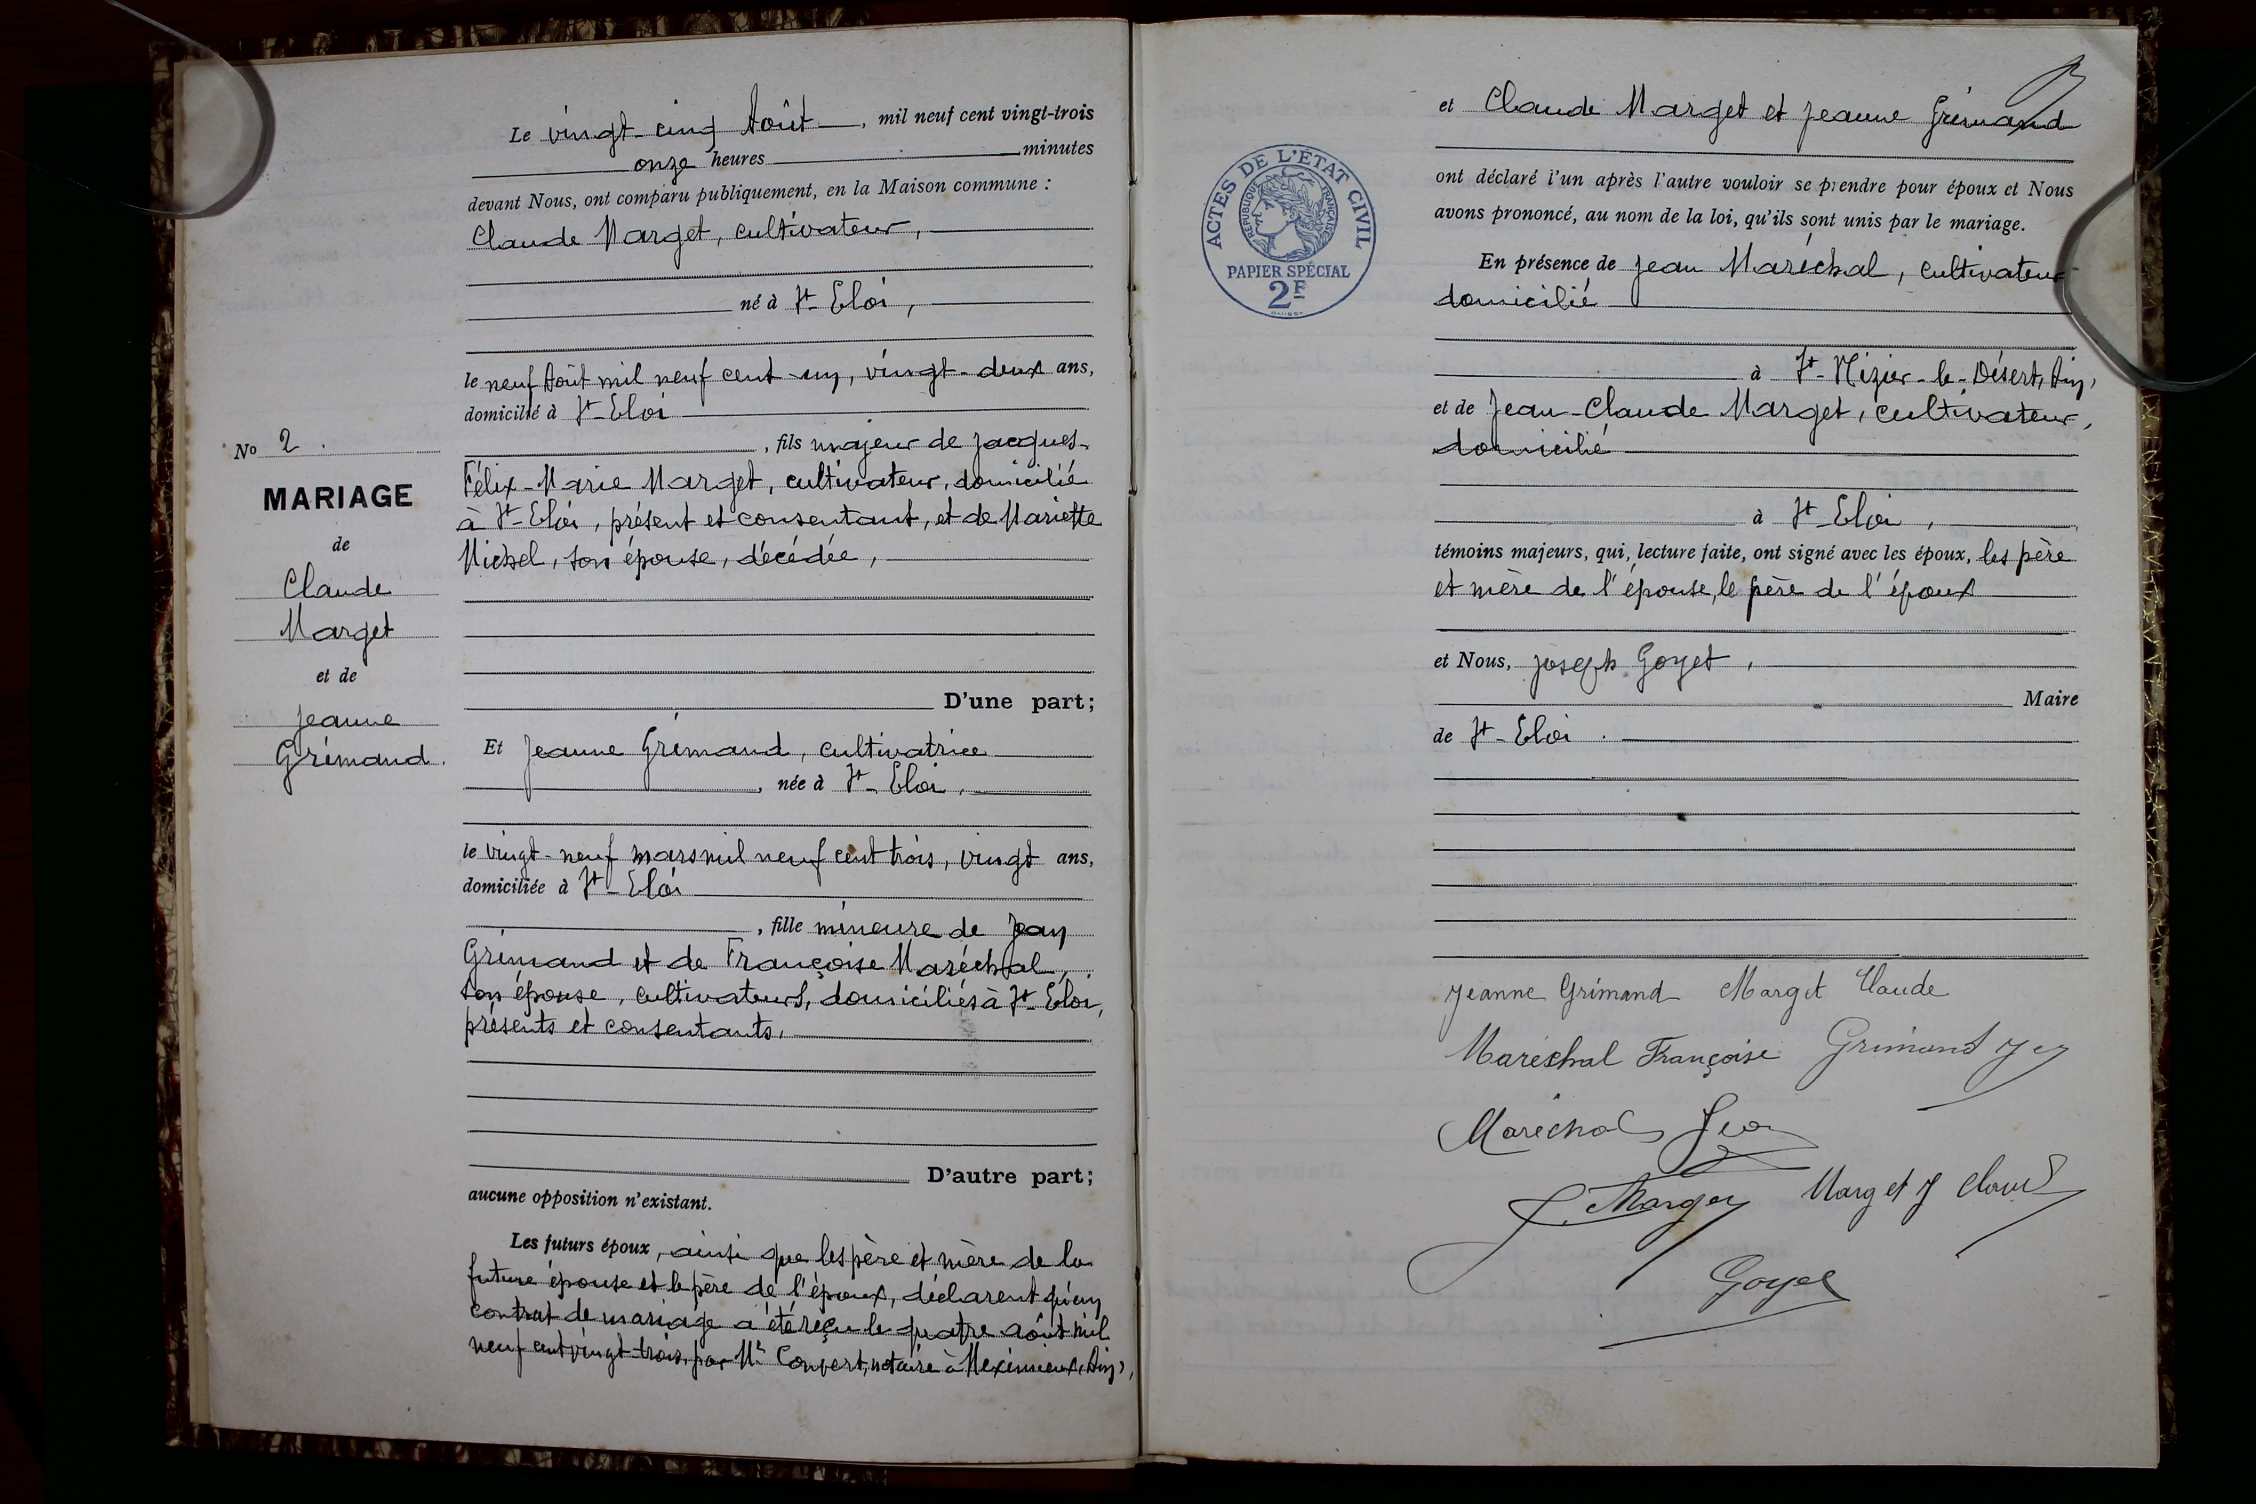 Le vingt-cinq Août, mil neuf cent vingt-trois
onze heures minutes
devant Nous, ont comparu publiquement, en la Maison commune :
Claude Marget, cultivateur,
né à St-Eloi,
le neuf Août mil neuf cent un, vingt-deux ans,
domicilié à St-Eloi
, fils majeur de Jacques-
Félix-Marie Marget, cultivateur, domicilié
à St-Eloi, présent et consentant, et de Mariette
Michel, son épouse, décédée,
D'une part;
No 2.
MARIAGE
de
Claude
Marget
et de
Jeanne
Grimand.
Et Jeanne Grimand, cultivatrice
, née à St-Eloi,
le vingt-neuf mars mil neuf cent trois, vingt ans,
domiciliée à St-Eloi
, fille mineure de Jean
Grimand et de Françoise Maréchal,
son épouse, cultivateurs, domiciliés à St-Eloi,
présents et consentants.
D'autre part;
aucune opposition n'existant.
Les futurs époux, ainsi que les père et mère de la
future épouse et le père de l'époux, déclarent qu'un
contrat de mariage a été reçu le quatre août mil
neuf cent vingt-trois, par Me Convert, notaire à Meximieux (Ain),
et Claude Marget et Jeanne Grimand
ont déclaré l'un après l'autre vouloir se prendre pour époux et Nous
avons prononcé, au nom de la loi, qu'ils sont unis par le mariage.
En présence de Jean Maréchal, cultivateur
domicilié
à St-Nizier-le-Désert, Ain,
et de Jean-Claude Marget, cultivateur,
domicilié
à St-Eloi,
témoins majeurs, qui, lecture faite, ont signé avec les époux, les père
et mère de l'épouse, le père de l'époux
et Nous, Joseph Goyet,
Maire
de St-Eloi.
ACTES DE L'ÉTAT CIVIL
RÉPUBLIQUE FRANÇAISE
PAPIER SPÉCIAL
2F
Jeanne Grimand Marget Claude
Maréchal Françoise Grimand
Maréchal Jean
J. Marget Marget J Claude
Goyet